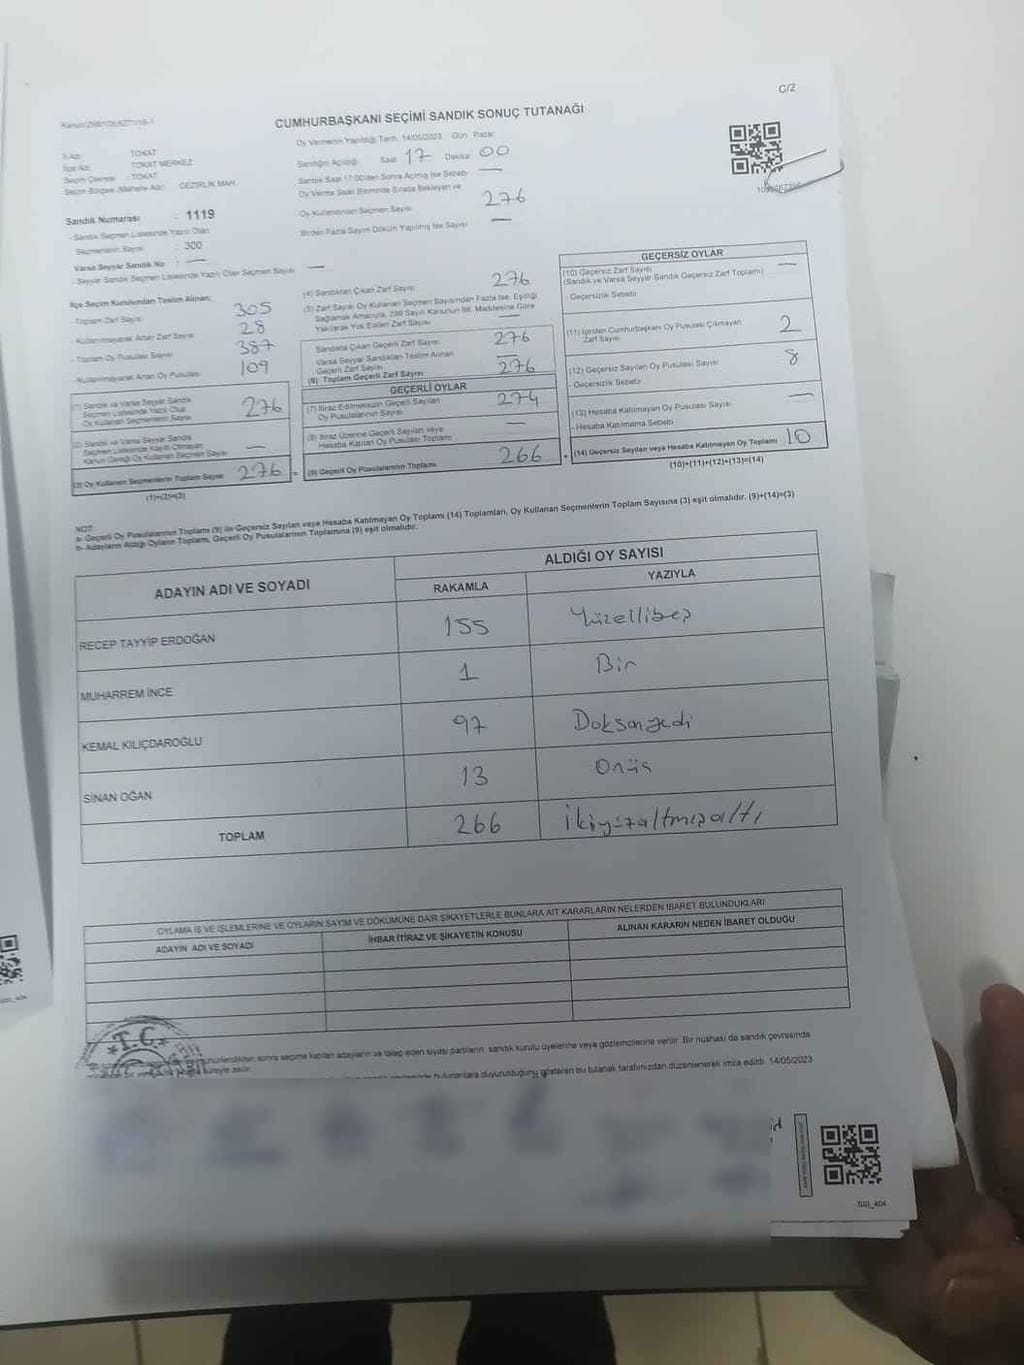 C/2
CUMHURBAŞKANI SEÇİMİ SANDIK SONUÇ TUTANAĞI
İl Adı : TOKAT
İlçe Adı : TOKAT MERKEZ
Seçim Çevresi : TOKAT
Seçim Bölgesi (Mahalle Adı) : GEZİRLİK MAH.
Sandık Numarası : 1119
- Sandık Seçmen Listesinde Yazılı Olan
Seçmenlerin Sayısı : 300
Varsa Seyyar Sandık No : —
- Seyyar Sandık Seçmen Listesinde Yazılı Olan Seçmen Sayısı —
Oy Vermenin Yapıldığı Tarih 14/05/2023 Gün Pazar
Sandığın Açıldığı Saat 17 Dakika 00
Sandık Saat 17:00'den Sonra Açılmış İse Sebebi —
Oy Verme Saati Bitiminde Sırada Bekleyen ve
Oy Kullandırılan Seçmen Sayısı 276
Birden Fazla Sayım Döküm Yapılmış İse Sayısı —
İlçe Seçim Kurulundan Teslim Alınan;
Toplam Zarf Sayısı 305
- Kullanılmayarak Artan Zarf Sayısı 28
- Toplam Oy Pusulası Sayısı 387
- Kullanılmayarak Artan Oy Pusulası 109
(1) Sandık ve Varsa Seyyar Sandık
Seçmen Listesinde Yazılı Olup
Oy Kullanan Seçmenlerin Sayısı 276
(2) Sandık ve Varsa Seyyar Sandık
Seçmen Listesinde Kayıtlı Olmayan
Kanun Gereği Oy Kullanan Seçmen Sayısı —
(3) Oy Kullanan Seçmenlerin Toplam Sayısı 276 =
(1)+(2)=(3)
(4) Sandıktan Çıkan Zarf Sayısı 276
(5) Zarf Sayısı Oy Kullanan Seçmen Sayısından Fazla İse, Eşitliği
Sağlamak Amacıyla, 298 Sayılı Kanunun 98. Maddesine Göre
Yakılarak Yok Edilen Zarf Sayısı —
Sandıkta Çıkan Geçerli Zarf Sayısı 276
Varsa Seyyar Sandıktan Teslim Alınan
Geçerli Zarf Sayısı —
(6) Toplam Geçerli Zarf Sayısı 276
GEÇERLİ OYLAR
(7) İtiraz Edilmeksizin Geçerli Sayılan
Oy Pusulalarının Sayısı 274
(8) İtiraz Üzerine Geçerli Sayılan veya
Hesaba Katılan Oy Pusulası Toplamı —
(9) Geçerli Oy Pusulalarının Toplamı 266 +
GEÇERSİZ OYLAR
(10) Geçersiz Zarf Sayısı —
(Sandık ve Varsa Seyyar Sandık Geçersiz Zarf Toplamı)
- Geçersizlik Sebebi
(11) İçinden Cumhurbaşkanı Oy Pusulası Çıkmayan
Zarf Sayısı 2
(12) Geçersiz Sayılan Oy Pusulası Sayısı 8
- Geçersizlik Sebebi
(13) Hesaba Katılmayan Oy Pusulası Sayısı —
- Hesaba Katılmama Sebebi
(14) Geçersiz Sayılan veya Hesaba Katılmayan Oy Toplamı 10
(10)+(11)+(12)+(13)=(14)
NOT:
a- Geçerli Oy Pusulalarının Toplamı (9) ile Geçersiz Sayılan veya Hesaba Katılmayan Oy Toplamı (14) Toplamları, Oy Kullanan Seçmenlerin Toplam Sayısına (3) eşit olmalıdır. (9)+(14)=(3)
b- Adayların Aldığı Oyların Toplamı, Geçerli Oy Pusulalarının Toplamına (9) eşit olmalıdır.
ADAYIN ADI VE SOYADI
ALDIĞI OY SAYISI
RAKAMLA YAZIYLA
RECEP TAYYİP ERDOĞAN 155 Yüzellibeş
MUHARREM İNCE 1 Bir
KEMAL KILIÇDAROĞLU 97 Doksanyedi
SİNAN OĞAN 13 Onüç
TOPLAM 266 İkiyüzaltmışaltı
OYLAMA İŞ VE İŞLEMLERİNE VE OYLARIN SAYIM VE DÖKÜMÜNE DAİR ŞİKAYETLERLE BUNLARA AİT KARARLARIN NELERDEN İBARET BULUNDUKLARI
ADAYIN ADI VE SOYADI İHBAR İTİRAZ VE ŞİKAYETİN KONUSU ALINAN KARARIN NEDEN İBARET OLDUĞU
T.C.
sonra seçime katılan adayların ve talep eden siyasi partilerin sandık kurulu üyelerine veya gözlemcilerine verilir. Bir nüshası da sandık çevresinde
süreyle asılır.
bulunanlara duyurulduğunu gösteren bu tutanak tarafımızdan düzenlenerek imza edildi. 14/05/2023